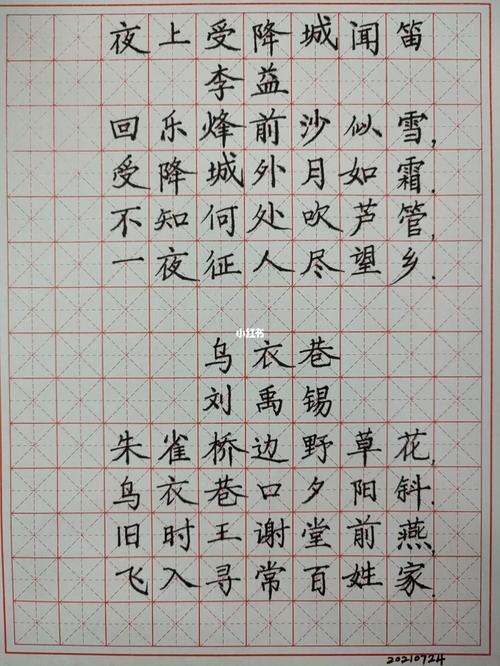 夜上受降城闻笛
李益
回乐烽前沙似雪,
受降城外月如霜.
不知何处吹芦管,
一夜征人尽望乡.
小红书
乌衣巷
刘禹锡
朱雀桥边野草花,
乌衣巷口夕阳斜.
旧时王谢堂前燕,
飞入寻常百姓家.
20210724